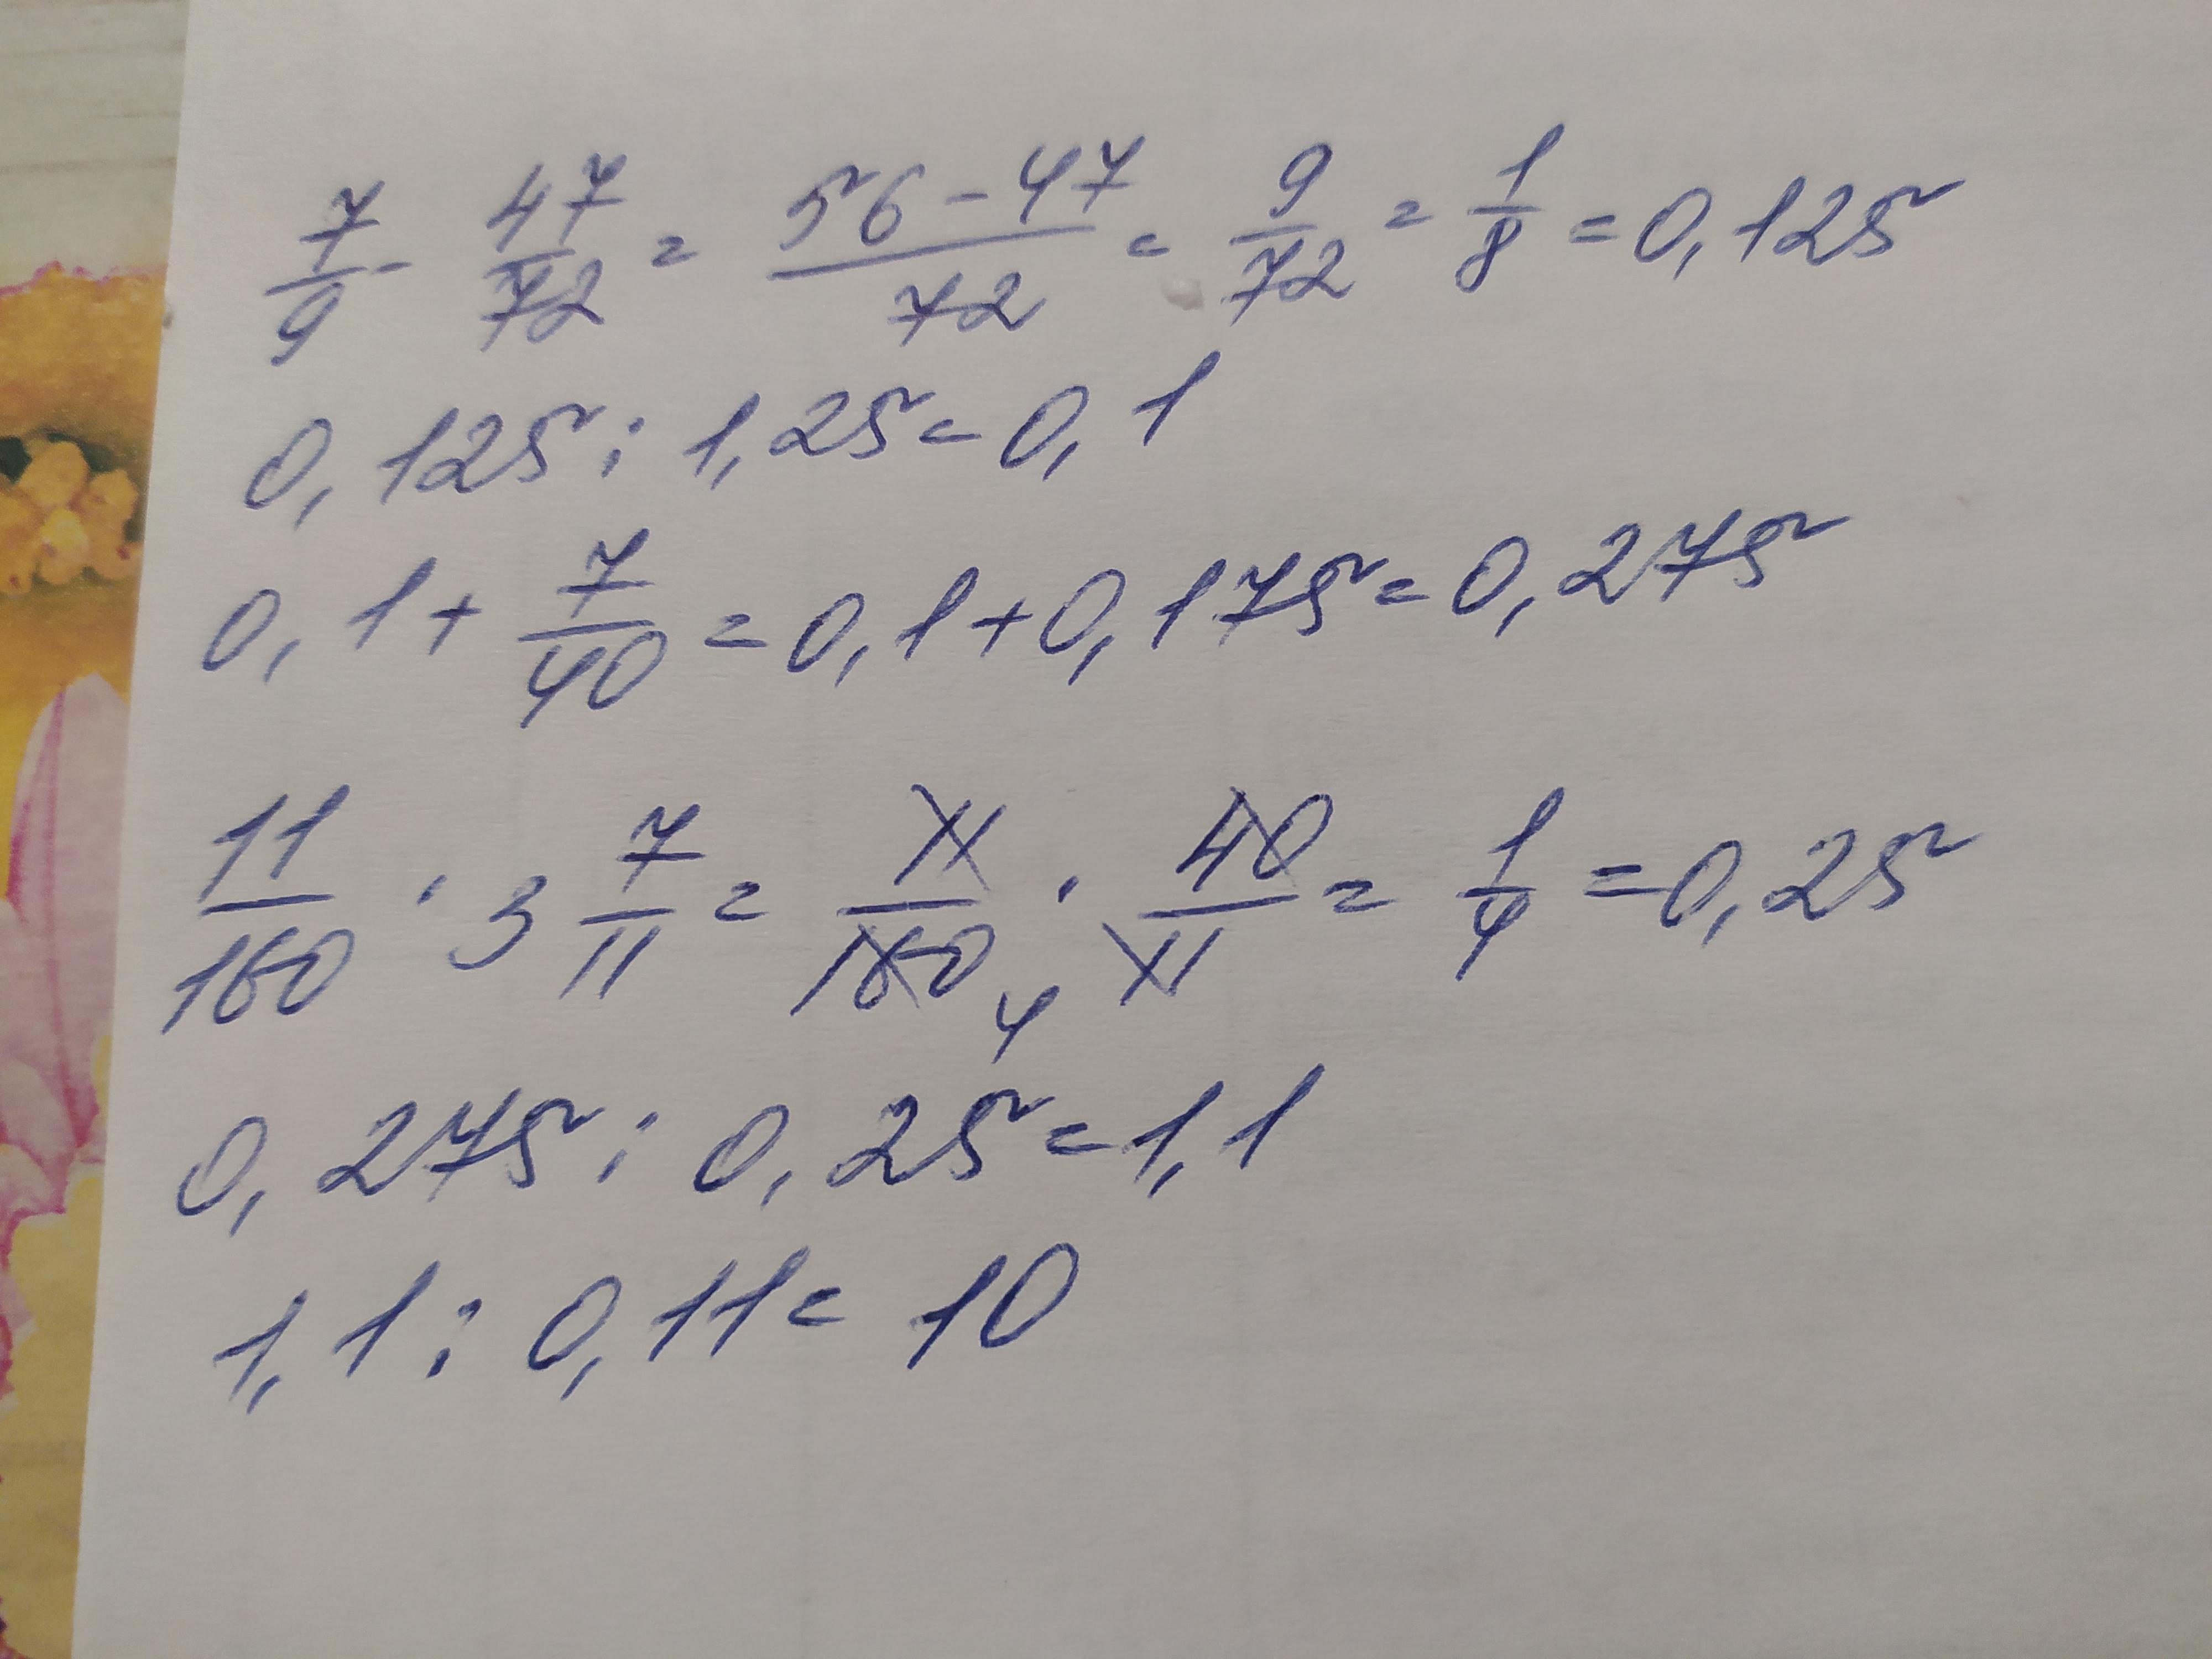 7/9 - 47/72 = (56-47)/72 = 9/72 = 1/8 = 0,125
0,125 : 1,25 = 0,1
0,1 + 7/40 = 0,1 + 0,175 = 0,275
11/160 · 3 7/11 = 11/160 4 · 40/11 = 1/4 = 0,25
0,275 : 0,25 = 1,1
1,1 : 0,11 = 10